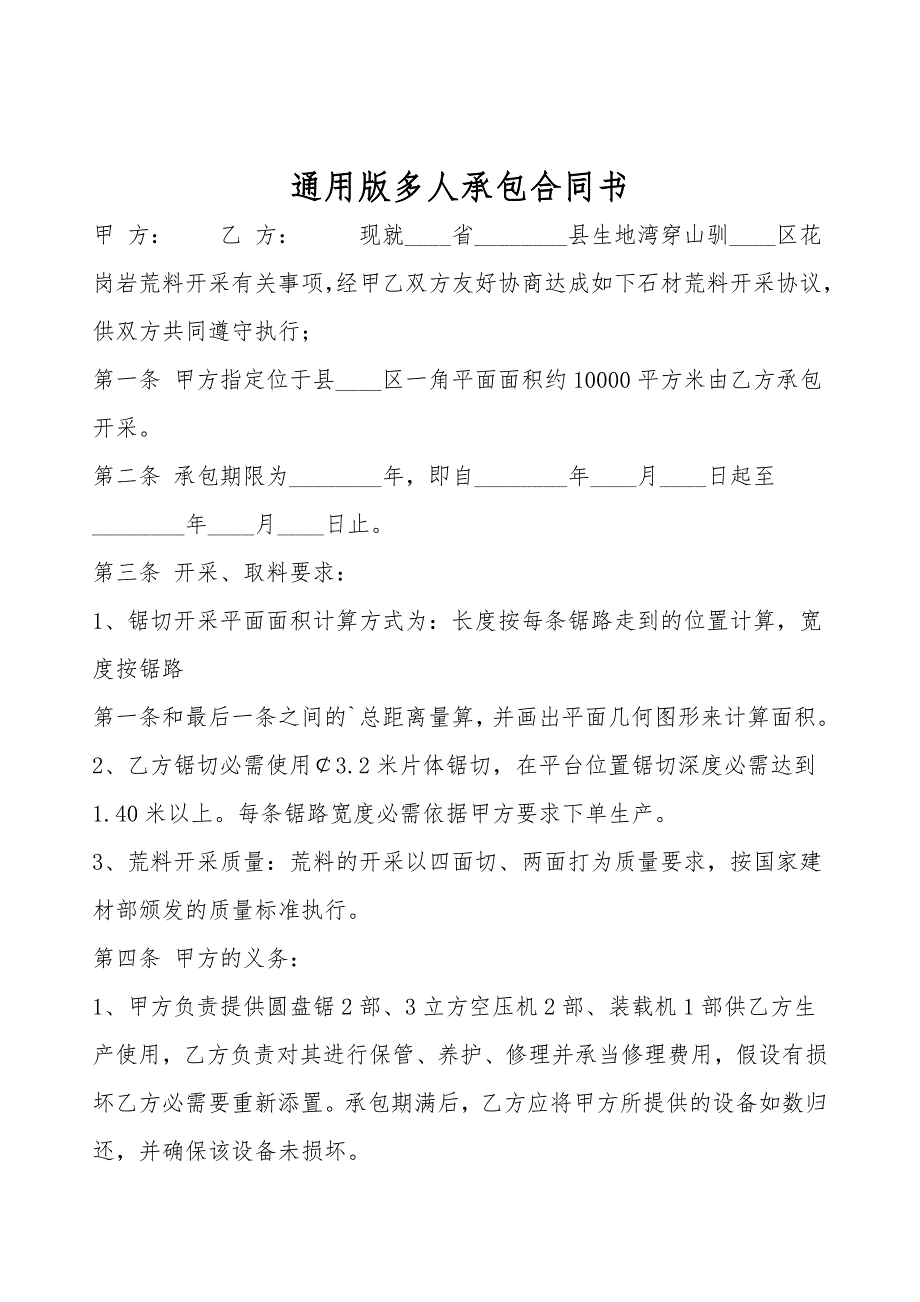 通用版多人承包合同书
甲 方： 乙 方： 现就____省________县生地湾穿山驯____区花
岗岩荒料开采有关事项，经甲乙双方友好协商达成如下石材荒料开采协议，
供双方共同遵守执行；
第一条 甲方指定位于县____区一角平面面积约 10000 平方米由乙方承包
开采。
第二条 承包期限为________年，即自________年____月____日起至
________年____月____日止。
第三条 开采、取料要求：
1、锯切开采平面面积计算方式为：长度按每条锯路走到的位置计算，宽
度按锯路
第一条和最后一条之间的`总距离量算，并画出平面几何图形来计算面积。
2、乙方锯切必需使用￠3.2 米片体锯切，在平台位置锯切深度必需达到
1.40 米以上。每条锯路宽度必需依据甲方要求下单生产。
3、荒料开采质量：荒料的开采以四面切、两面打为质量要求，按国家建
材部颁发的质量标准执行。
第四条 甲方的义务：
1、甲方负责提供圆盘锯 2 部、3 立方空压机 2 部、装载机 1 部供乙方生
产使用，乙方负责对其进行保管、养护、修理并承当修理费用，假设有损
坏乙方必需要重新添置。承包期满后，乙方应将甲方所提供的设备如数归
还，并确保该设备未损坏。